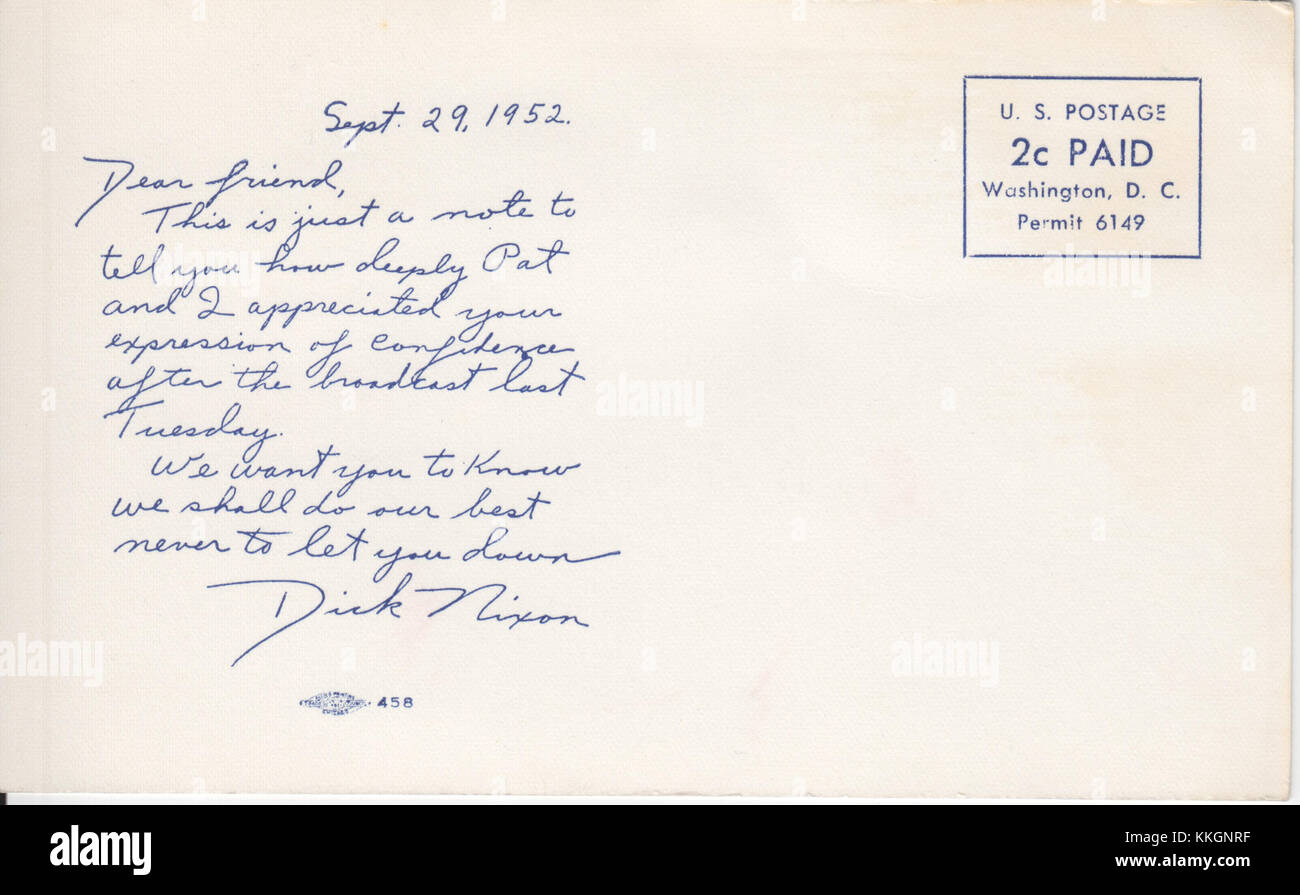 Sept. 29, 1952.
Dear friend,
This is just a note to
tell you how deeply Pat
and I appreciated your
expression of confidence
after the broadcast last
Tuesday.
We want you to know
we shall do our best
never to let you down
Dick Nixon
458
U. S. POSTAGE
2c PAID
Washington, D. C.
Permit 6149
alamy
Image ID: KKGNRF
www.alamy.com